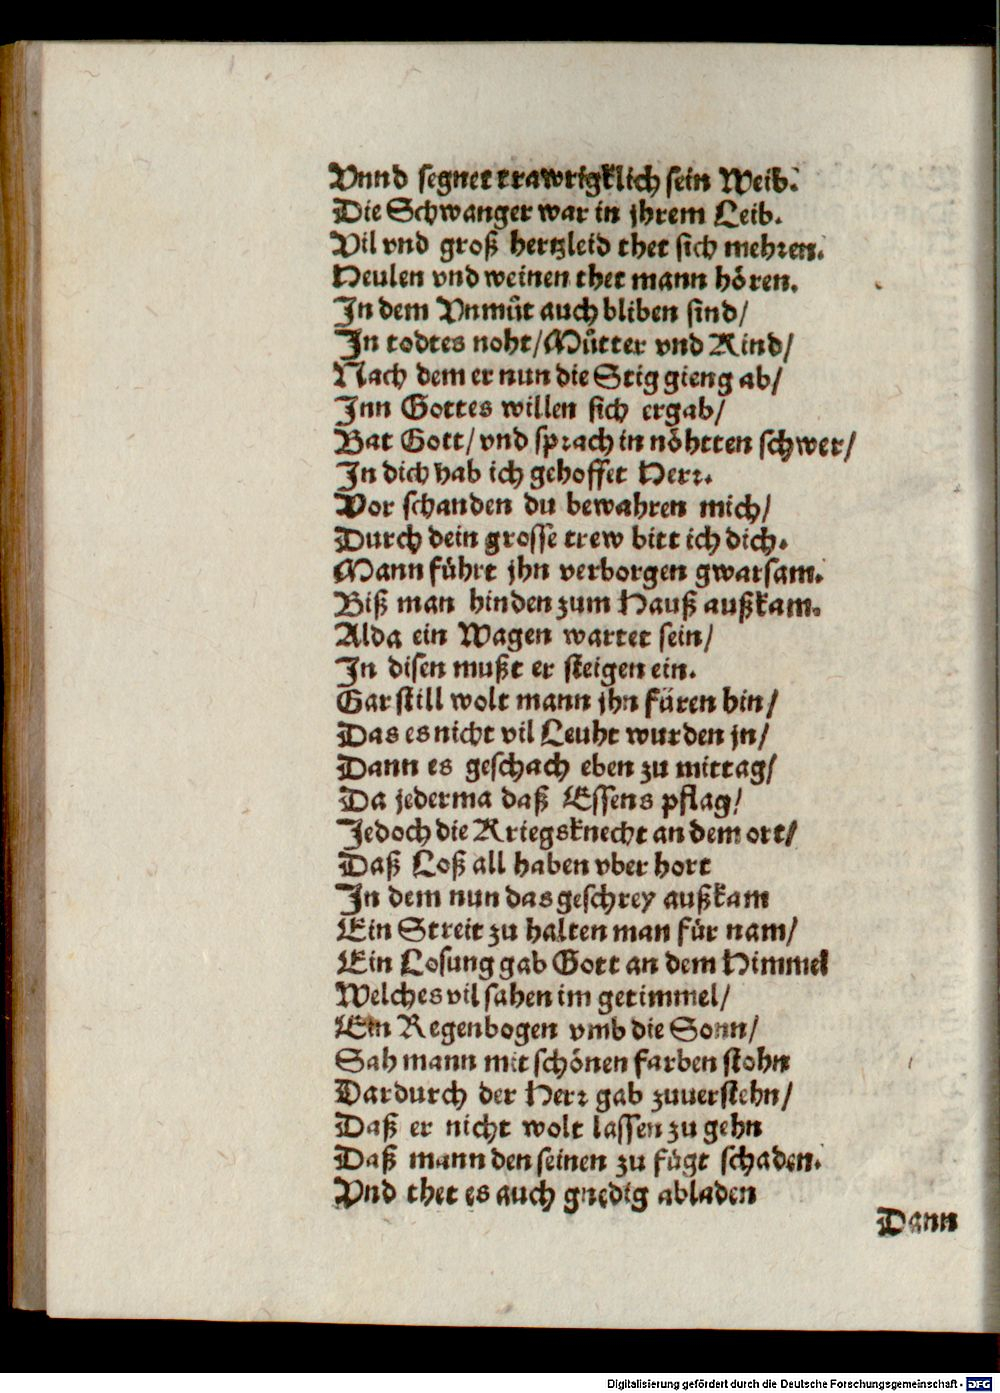 Vnnd segnet trawrigklich sein Weib.
Die Schwanger war in jhrem Leib.
Vil vnd groß hertzleid thet sich mehren.
Heulen vnd weinen thet mann hören.
In dem Vnmůt auch bliben sind/
In todtes noht/Můtter vnd Kind/
Nach dem er nun die Stig gieng ab/
Inn Gottes willen sich ergab/
Bat Gott/ vnd sprach in nöhtten schwer/
In dich hab ich gehoffet Herr.
Vor schanden du bewahren mich/
Durch dein grosse trew bitt ich dich.
Mann führt jhn verborgen gwarsam.
Biß man hinden zum Hauß außkam.
Alda ein Wagen wartet sein/
In disen mußt er steigen ein.
Gar still wolt mann jhn füren hin/
Das es nicht vil Leuht wurden jn/
Dann es geschach eben zu mittag/
Da jederma daß Essens pflag/
Jedoch die Kriegsknecht an dem ort/
Daß Loß all haben vber hort
In dem nun das geschrey außkam
Ein Streit zu halten man für nam/
Ein Losung gab Gott an dem Himmel
Welches vil sahen im getimmel/
Ein Regenbogen vmb die Sonn/
Sah mann mit schönen farben stohn
Dardurch der Herr gab zuuerstehn/
Daß er nicht wolt lassen zu gehn
Daß mann den seinen zu fügt schaden.
Vnd thet es auch gnedig abladen
Dann
Digitalisierung gefördert durch die Deutsche Forschungsgemeinschaft - DFG